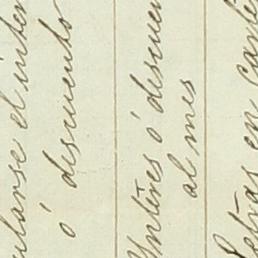 ularse el inter
ó descuento
Ynterés ó descuen
al mes
Letras en carte